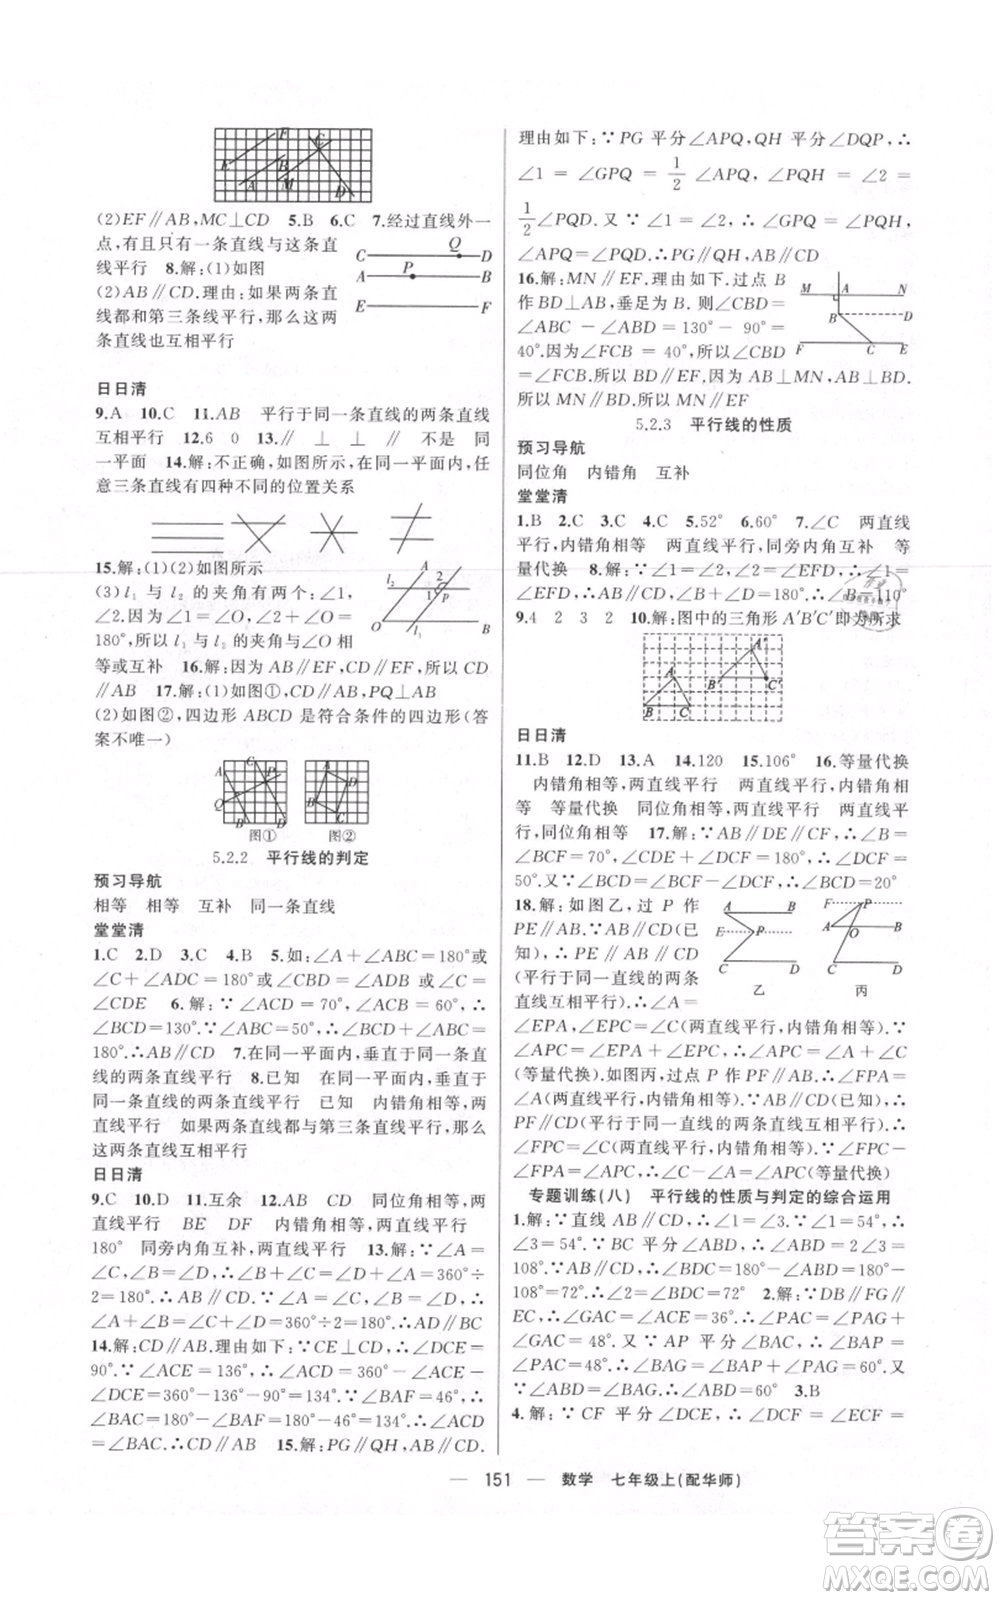 (2)EF∥AB,MC⊥CD　5.B　6.C　7.经过直线外一
点,有且只有一条直线与这条直
线平行　8.解:(1)如图
(2)AB∥CD.理由:如果两条直
线都和第三条线平行,那么这两
条直线也互相平行
日日清
9.A　10.C　11.AB　平行于同一条直线的两条直线
互相平行　12.6　0　13.∥　⊥　⊥　∥　不是　同
一平面　14.解:不正确,如图所示,在同一平面内,任
意三条直线有四种不同的位置关系
15.解:(1)(2)如图所示
(3)l₁与l₂的夹角有两个:∠1,
∠2.因为∠1=∠O,∠2+∠O=
180°,所以l₁与l₂的夹角与∠O相
等或互补　16.解:因为AB∥EF,CD∥EF,所以CD
∥AB　17.解:(1)如图①,AB∥CD,PQ⊥AB
(2)如图②,四边形ABCD是符合条件的四边形(答
案不唯一)
图①　图②
5.2.2　平行线的判定
预习导航
相等　相等　互补　同一条直线
堂堂清
1.C　2.D　3.C　4.B　5.如:∠A+∠ABC=180°或
∠C+∠ADC=180°或∠CBD=∠ADB或∠C=
∠CDE　6.解:∵∠ACD=70°,∠ACB=60°,∴
∠BCD=130°.∵∠ABC=50°,∴∠ABC+∠BCD=
180°.∴AB∥CD　7.在同一平面内,垂直于同一条直
线的两条直线平行　8.已知　在同一平面内,垂直于同
一条直线的两条直线平行　已知　内错角相等,两
直线平行　如果两条直线都与第三条直线平行,那么
这两条直线互相平行
日日清
9.C　10.D　11.互余　12.AB　CD　同位角相等,两
直线平行　BE　DF　内错角相等,两直线平行
180°　同旁内角互补,两直线平行　13.解:∵∠A=
∠C,∠B=∠D,∠A+∠B+∠C+∠D=360°÷
2=180°.∴∠A+∠B=360°÷2=180°.∴AD∥BC
14.解:CD∥AB.理由如下:∵CE⊥CD,∴∠DCE=
90°.∵∠ACE=136°,∴∠ACD=360°-∠ACE-
∠DCE=360°-136°-90°=134°.∵∠BAF=46°,∴
∠BAC=180°-∠BAF=180°-46°=134°.∴∠ACD
=∠BAC.∴CD∥AB　15.解:PG∥QH,AB∥CD.
理由如下:∵PG平分∠APQ,QH平分∠DQP,∴
∠1=∠GPQ=1/2∠APQ,∠PQH=∠2=
1/2∠PQD.又∵∠1=∠2,∴∠GPQ=∠PQH,
∠APQ=∠PQD.∴PG∥QH,AB∥CD
16.解:MN∥EF.理由如下.过点B
作BD⊥AB,垂足为B.则∠CBD=
∠ABC-∠ABD=130°-90°=
40°.因为∠FCB=40°,所以∠CBD
=∠FCB.所以BD∥EF.因为MN⊥AB,BD⊥AB.
所以MN∥BD.所以MN∥EF
5.2.3　平行线的性质
预习导航
同位角　内错角　互补
堂堂清
1.B　2.C　3.C　4.C　5.52°　6.60°　7.∠C　两直线
平行,内错角相等　两直线平行,同旁内角互补　等
量代换　8.解:∵∠1=∠2,∠2=∠EFD,∴∠1=
∠EFD.∴AB∥CD.∴∠B+∠D=180°.∴∠B=110°
9.4　2　3　2　10.解:图中的三角形A′B′C′即为所求
日日清
11.B　12.D　13.A　14.120　15.106°　16.等量代换
内错角相等,两直线平行　两直线平行,内错角相
等　等量代换　同位角相等,两直线平行　两直线平
行,同位角相等　17.解:∵AB∥DE∥CF,∴∠ABC=
∠BCF=70°,∠CDE+∠DCF=180°.∴∠DCF=
50°.又∵∠BCD=∠BCF-∠DCF,∴∠BCD=20°
18.解:如图乙,过P作
PE∥AB.∵AB∥CD(已
知),∴PE∥AB∥CD
(平行于同一直线的两条
直线互相平行).∴∠A=
∠EPA,∠EPC=∠C(两直线平行,内错角相等).∵
∠APC=∠EPA+∠EPC,∴∠APC=∠A+∠C
(等量代换).如图丙,过点P作PF∥AB.∴∠FPA=
∠A(两直线平行,内错角相等).∵AB∥CD(已知),∴
PF∥CD(平行于同一直线的两条直线互相平行).∴
∠FPC=∠C(两直线平行,内错角相等).∵∠FPC-
∠FPA=∠APC,∴∠C-∠A=∠APC(等量代换)
乙　丙
专题训练(八)　平行线的性质与判定的综合运用
1.解:∵直线AB∥CD,∴∠1=∠3.∵∠1=54°,∴
∠3=54°.∵BC平分∠ABD,∴∠ABD=2∠3=
108°.∵AB∥CD,∴∠BDC=180°-∠ABD=180°-
108°=72°.∴∠2=∠BDC=72°　2.解:∵DB∥FG∥
EC,∴∠GAC=∠ACE=36°,∴∠PAC=∠PAG+
∠GAC=48°.又∵AP平分∠BAC,∴∠BAP=
∠PAC=48°.∴∠BAG=∠BAP+∠PAG=60°.又
∵∠ABD=∠BAG,∴∠ABD=60°　3.B
4.解:∵CF平分∠DCE,∴∠DCF=∠ECF=
151　数学　七年级上(配华师)
答案卷